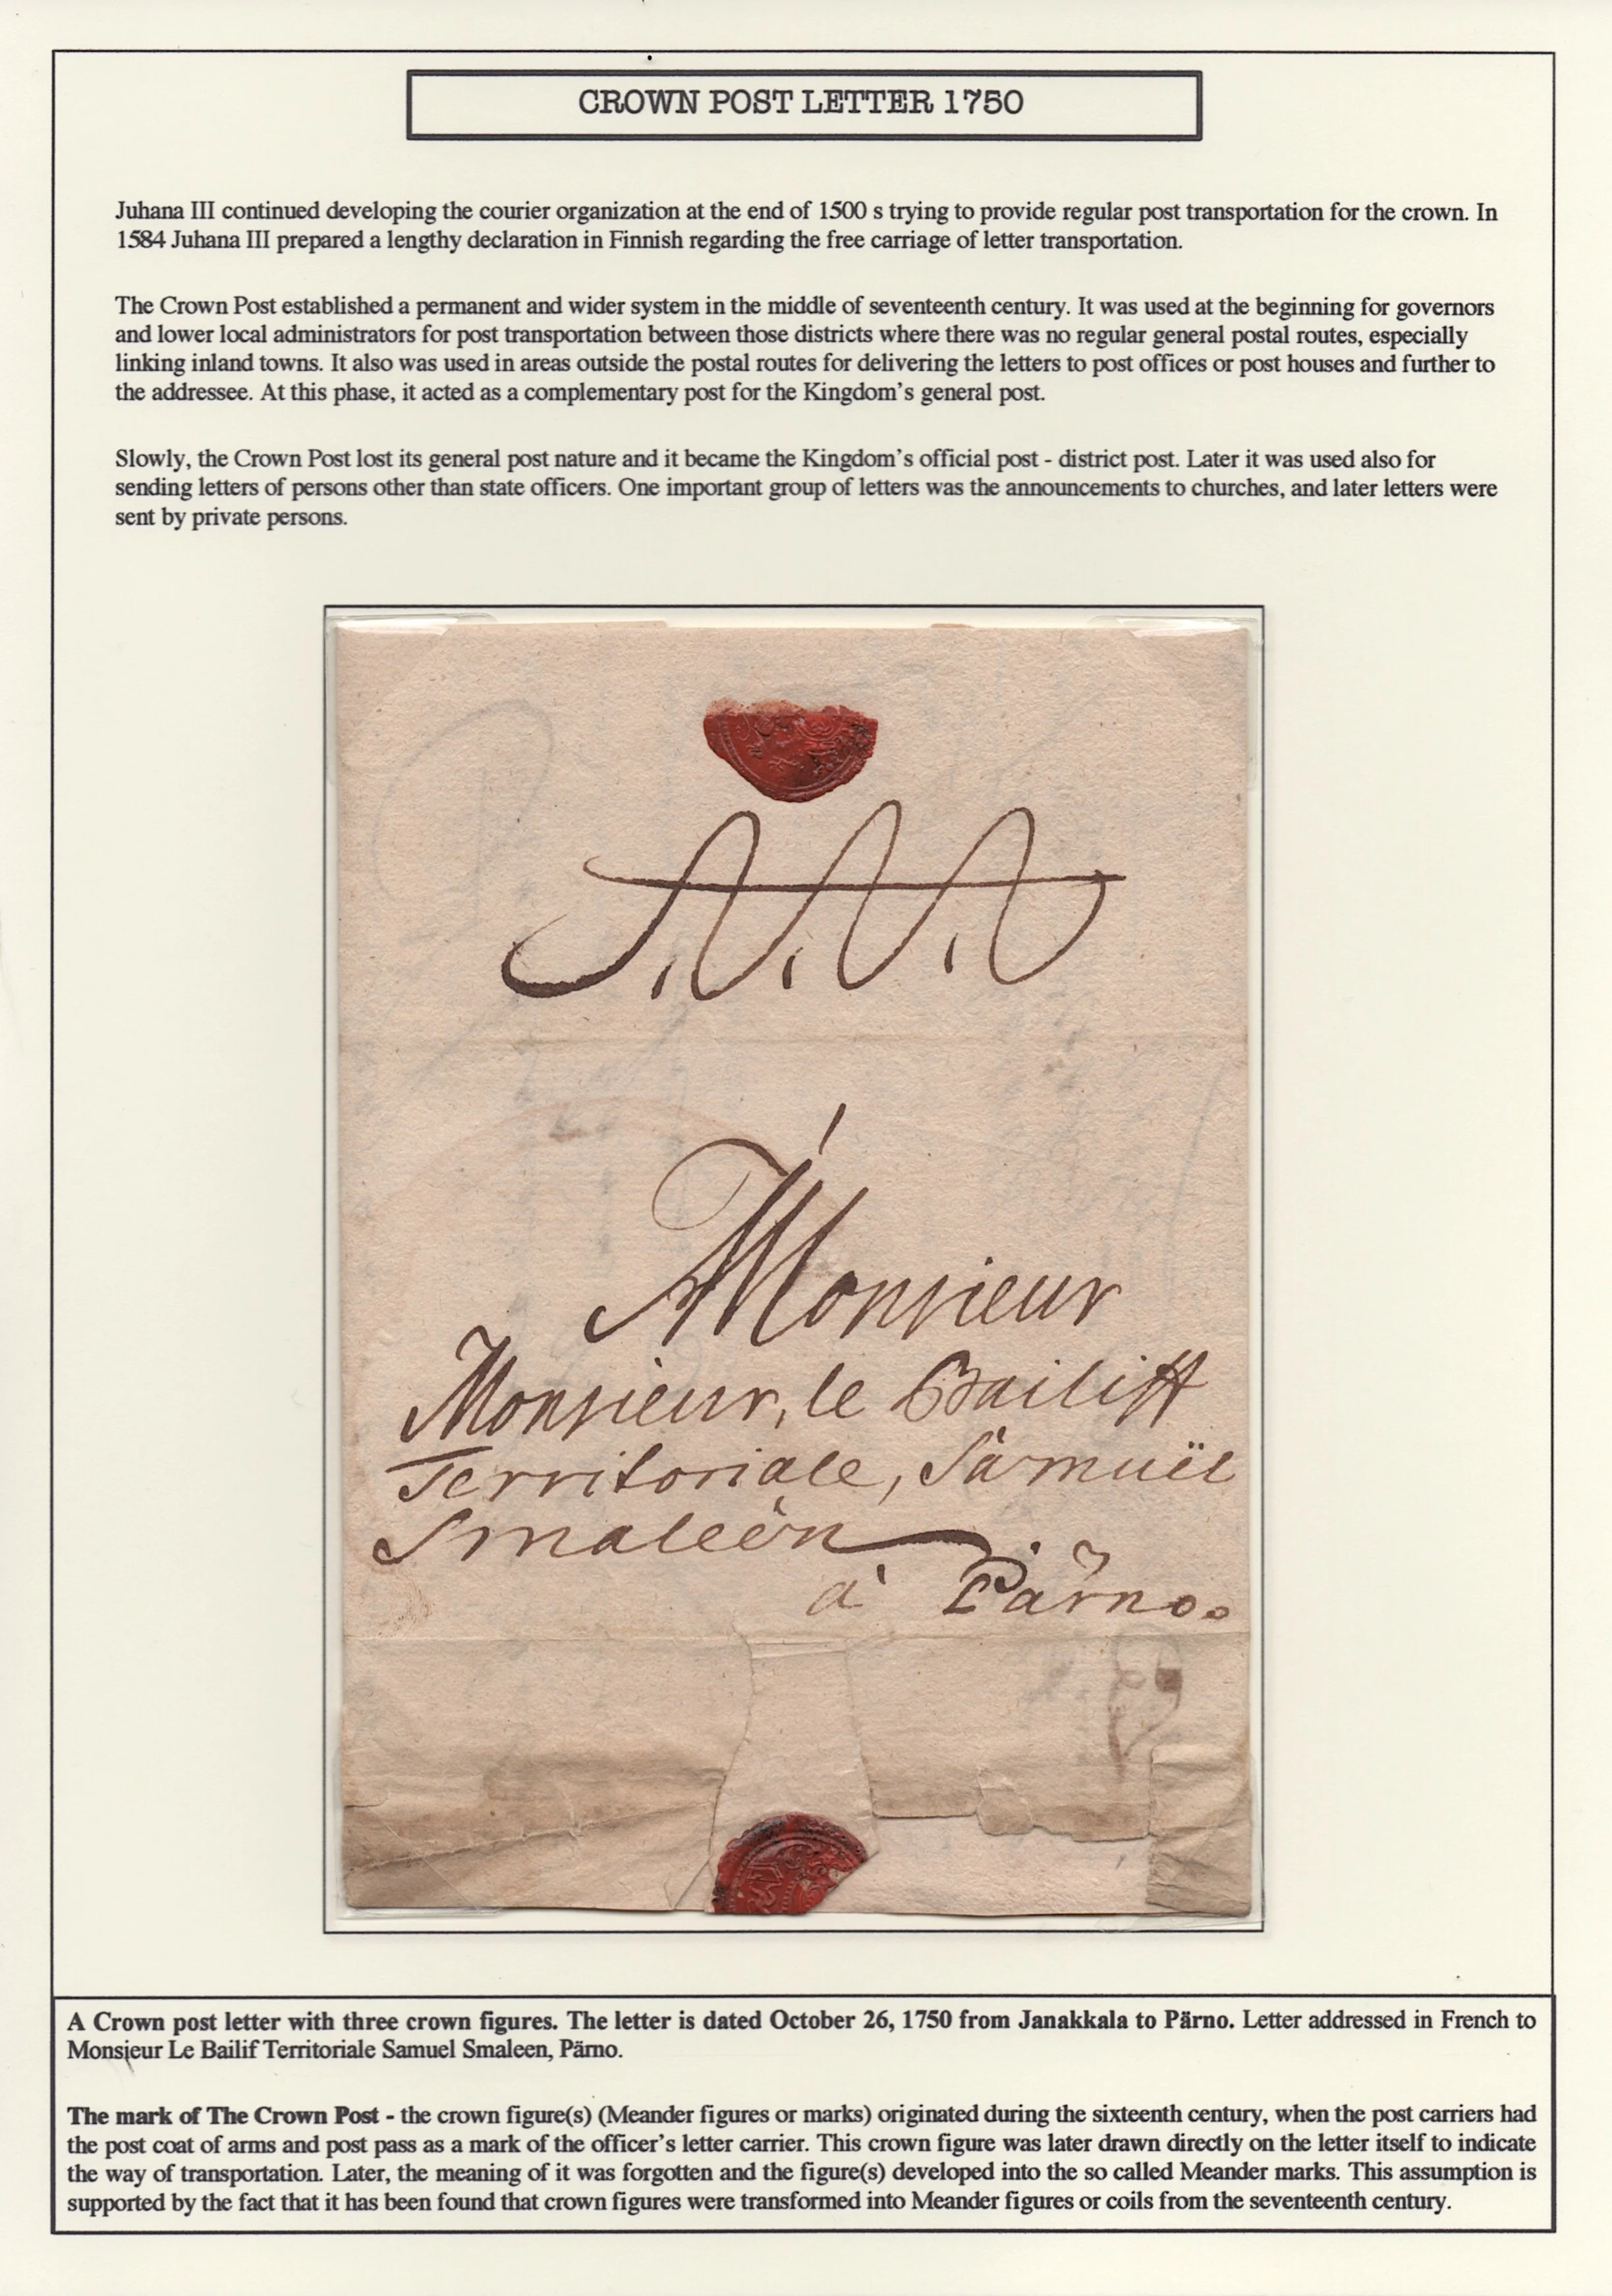 CROWN POST LETTER 1750
Juhana III continued developing the courier organization at the end of 1500 s trying to provide regular post transportation for the crown. In
1584 Juhana III prepared a lengthy declaration in Finnish regarding the free carriage of letter transportation.
The Crown Post established a permanent and wider system in the middle of seventeenth century. It was used at the beginning for governors
and lower local administrators for post transportation between those districts where there was no regular general postal routes, especially
linking inland towns. It also was used in areas outside the postal routes for delivering the letters to post offices or post houses and further to
the addressee. At this phase, it acted as a complementary post for the Kingdom's general post.
Slowly, the Crown Post lost its general post nature and it became the Kingdom's official post - district post. Later it was used also for
sending letters of persons other than state officers. One important group of letters was the announcements to churches, and later letters were
sent by private persons.
Monsieur
Monsieur, le Bailiff
Territoriale, Samuël
Smaleèn
à Pärno.
A Crown post letter with three crown figures. The letter is dated October 26, 1750 from Janakkala to Pärno. Letter addressed in French to
Monsieur Le Bailif Territoriale Samuel Smaleen, Pärno.
The mark of The Crown Post - the crown figure(s) (Meander figures or marks) originated during the sixteenth century, when the post carriers had
the post coat of arms and post pass as a mark of the officer's letter carrier. This crown figure was later drawn directly on the letter itself to indicate
the way of transportation. Later, the meaning of it was forgotten and the figure(s) developed into the so called Meander marks. This assumption is
supported by the fact that it has been found that crown figures were transformed into Meander figures or coils from the seventeenth century.